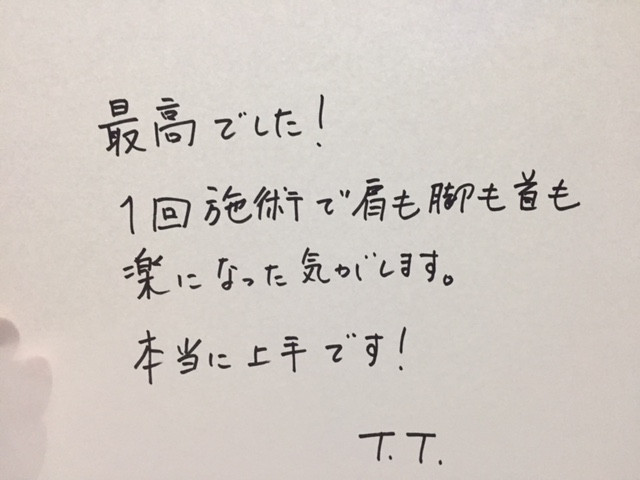 最高でした!
1回施術で肩も脚も首も
楽になった気がします。
本当に上手です!
T.T.